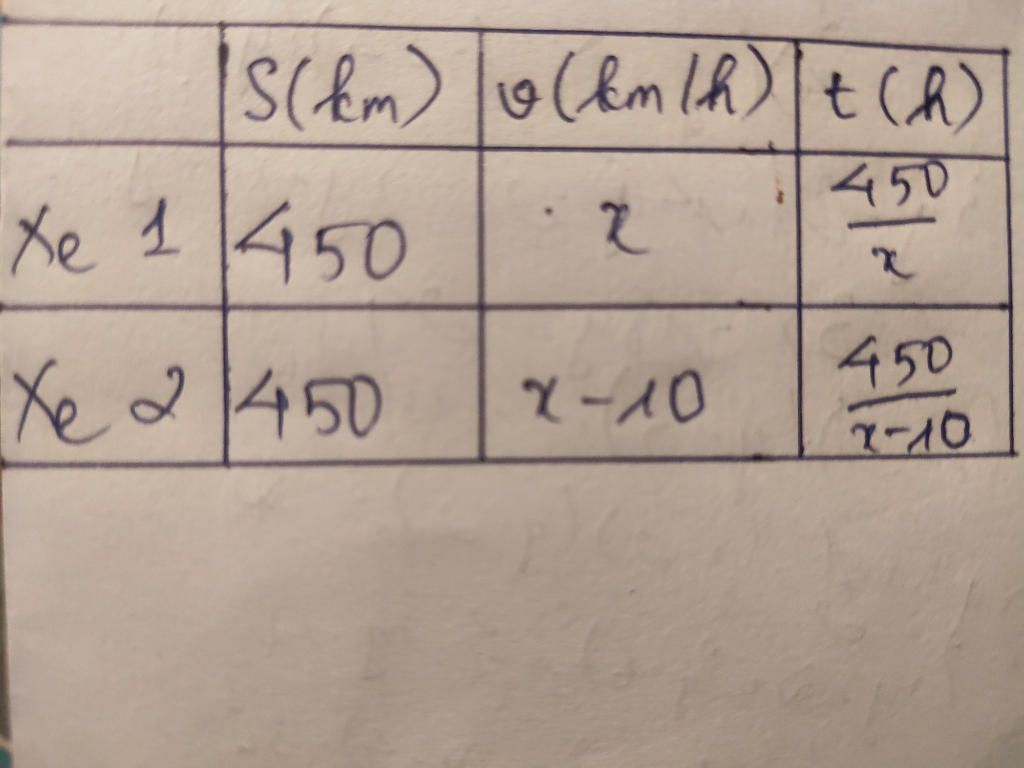 S(km) v(km/h) t(h)
Xe 1 450 x 450/x
Xe 2 450 x-10 450/x-10